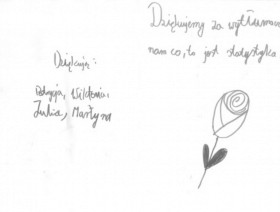 Dziękują:
Patrycja, Wiktoria,
Julia, Martyna
Dziękujemy za wytłumacze
nam co, to jest statystyka